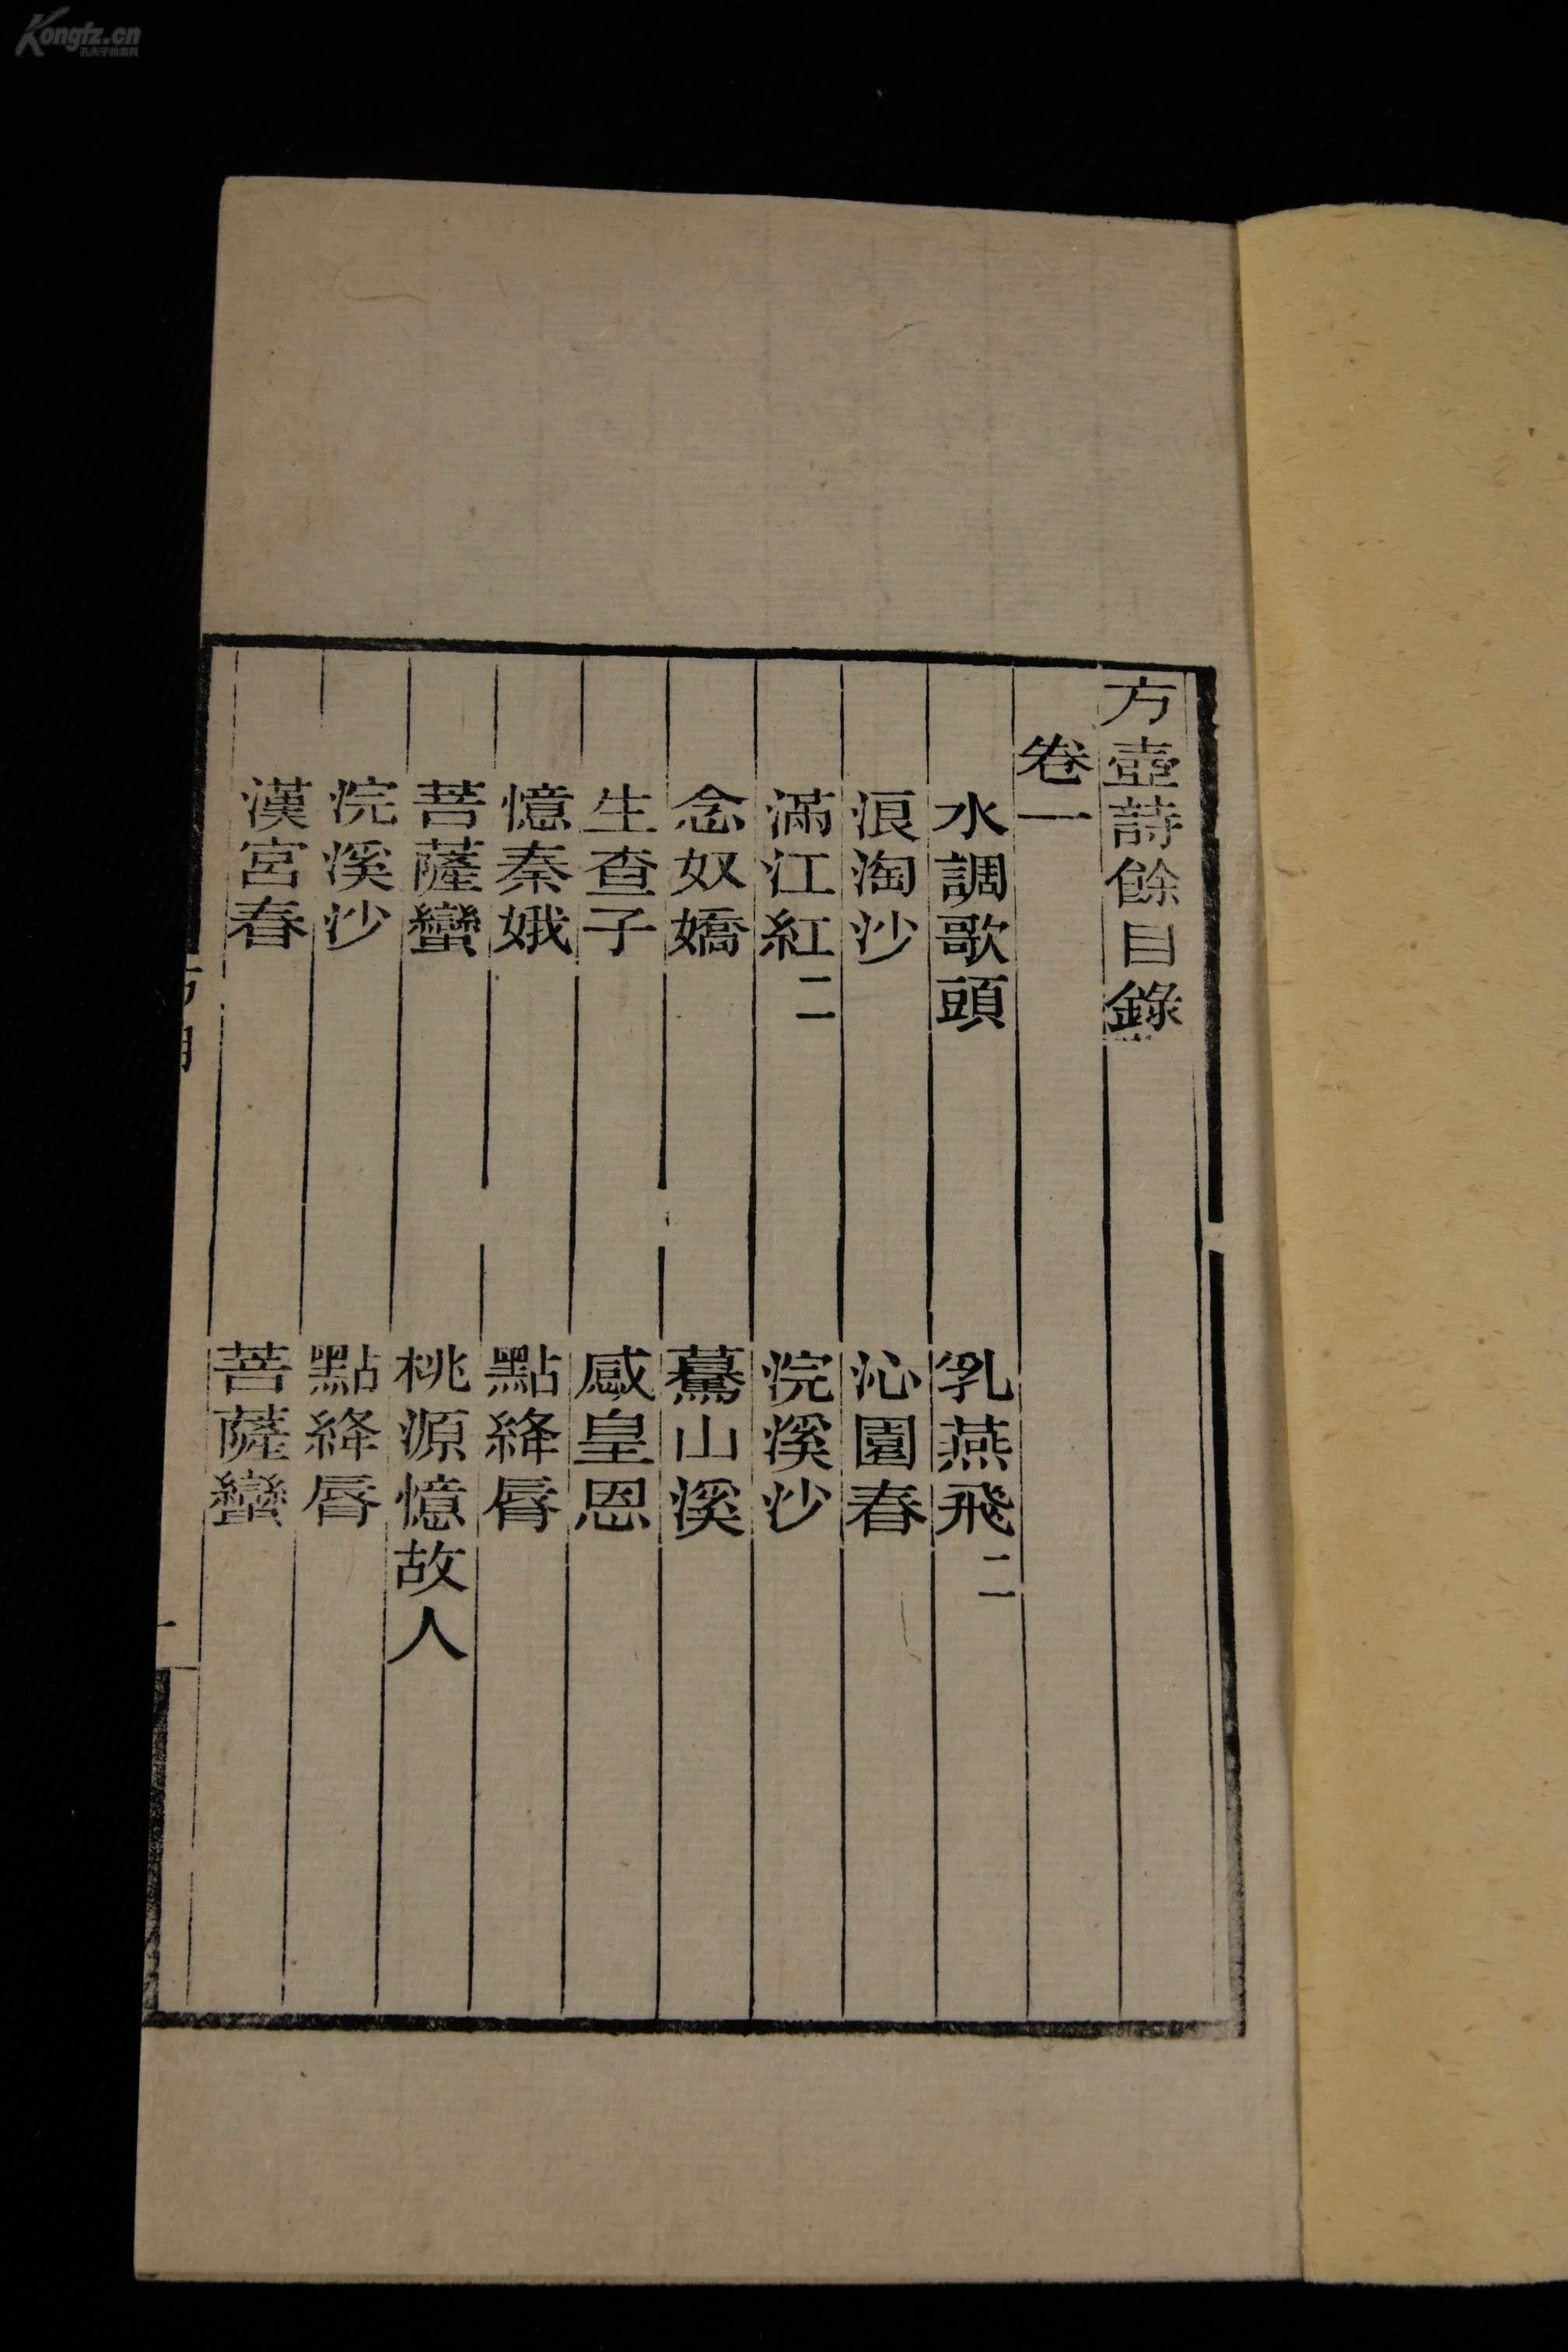 Kongfz.cn
孔夫子拍卖网
方壺詩餘目錄
卷一
水調歌頭 乳燕飛二
浪淘沙 沁園春
滿江紅二 浣溪沙
念奴嬌 驀山溪
生查子 感皇恩
憶秦娥 點絳脣
菩薩蠻 桃源憶故人
浣溪沙 點絳脣
漢宮春 菩薩蠻
一